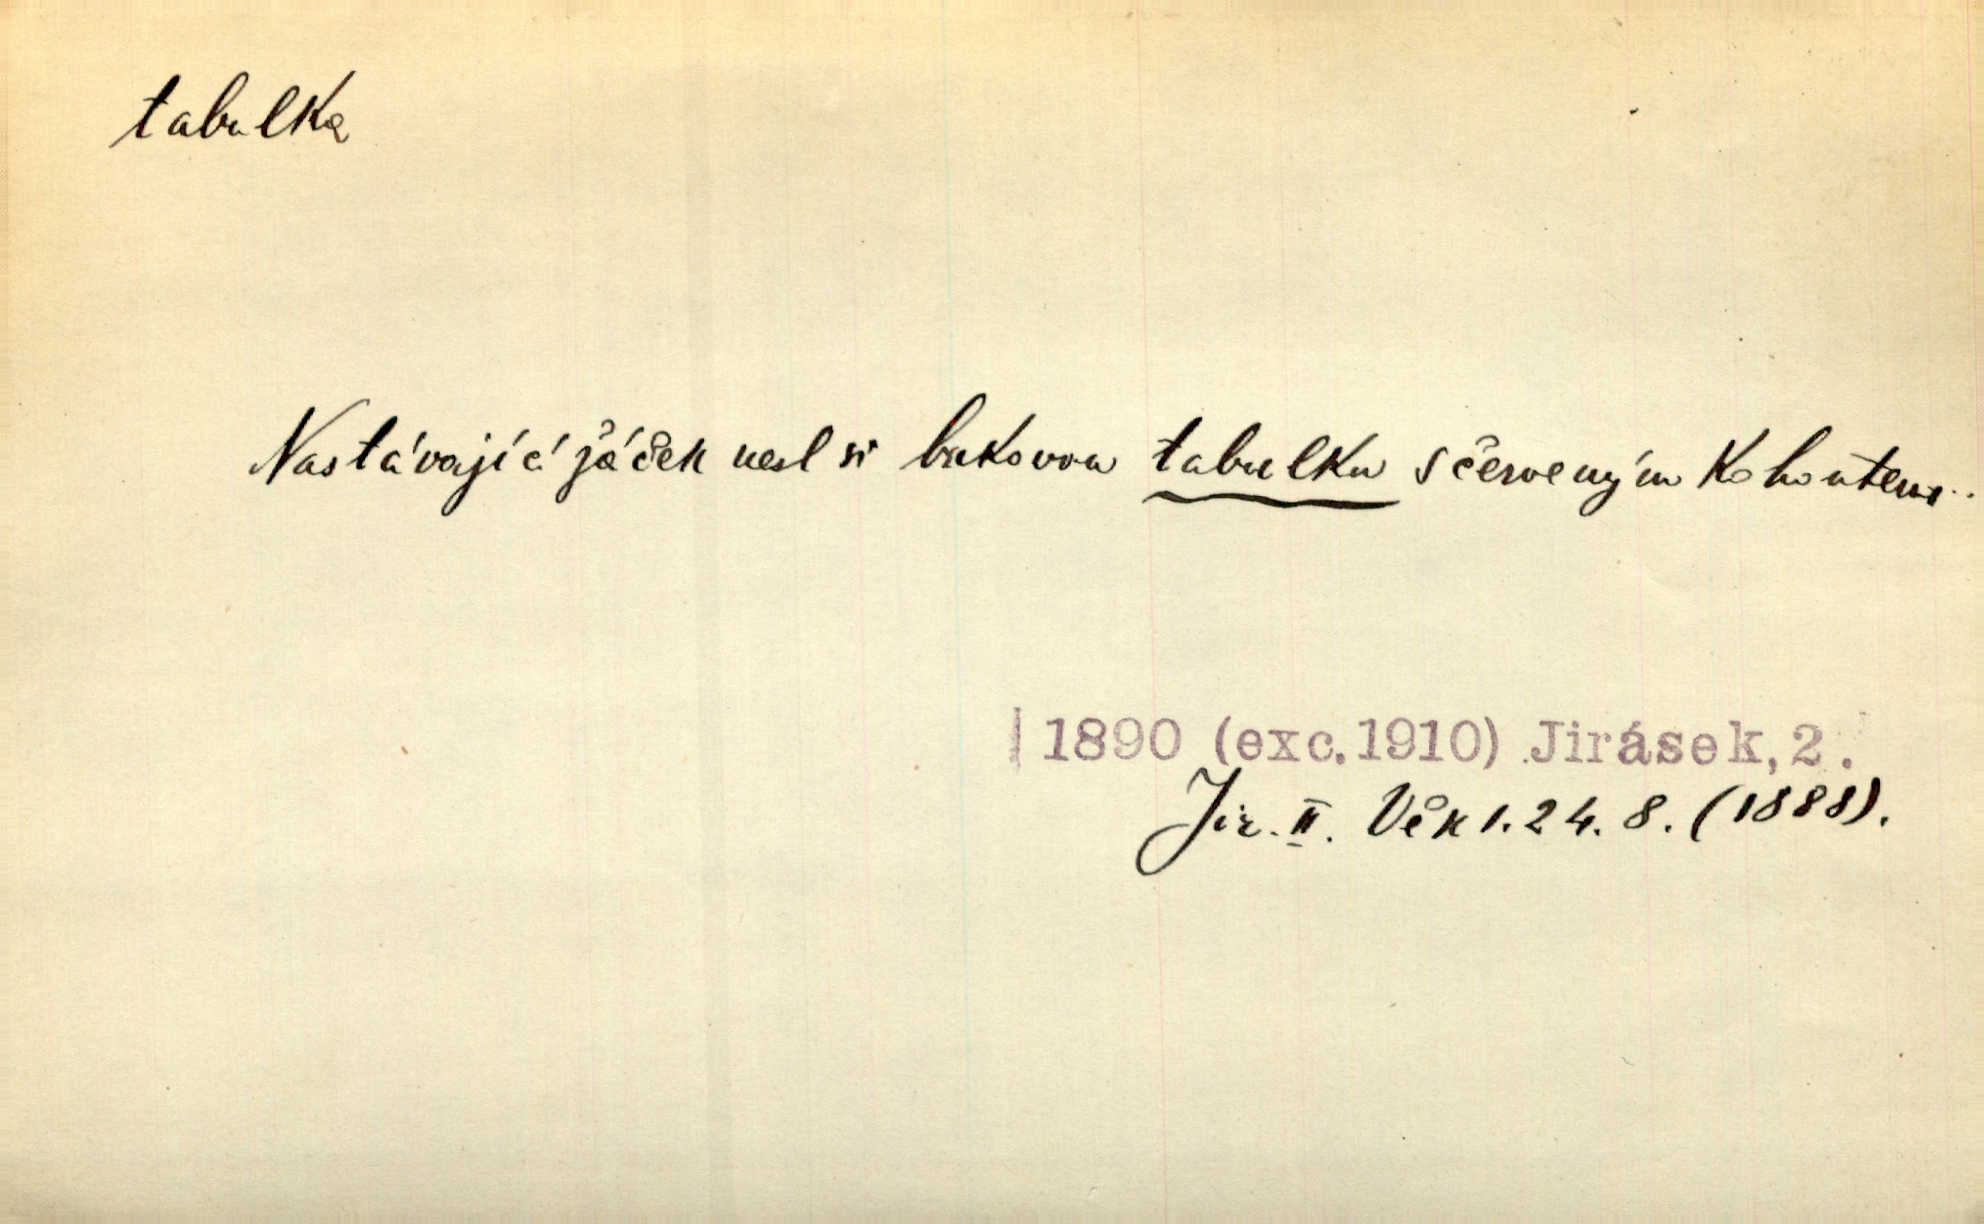 tabulka
Nastávající žáček nesl si bukovou tabulku s červeným kohoutem..
1890 (exc.1910) Jirásek, 2.
Jir. II. Věk 1. 24. 8. (1888).